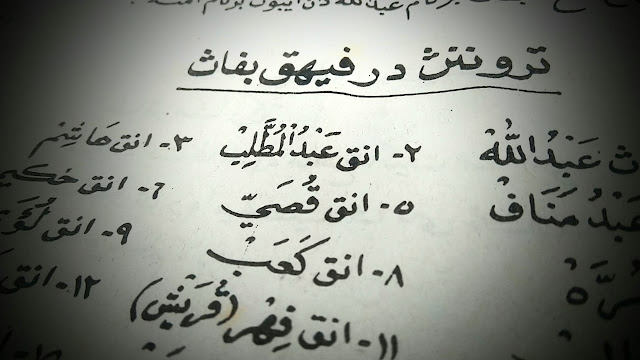 برنام عبدالله دان ايبوڽ برنام امنه
تروننڽ در فيهق بفاڽ
عَبْدُ اللّٰه ٢- انق عَبْدُ الْمُطَّلِبْ ٣- انق هَاشِمْ
عَبْدُ مَنَافْ ٥- انق قُصَيّ ٦- انق حَكِيم
مُرَّهْ ٨- انق كَعَبْ ٩- انق لُؤَي
١١- انق فِهْر (قُرَيْش) ١٢- انق